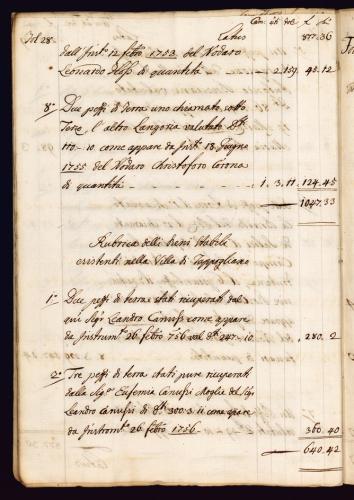 Cam. qti. del. £ s.
Fol 28. Latus 877.36
dall' Inst.º 12 febrº 1753 del Nodaro
Leonardo di quantità - 2.159. 45.12
8º Due pezzi di terra uno chiamato sotto
l'altro Langoria valutato D.ti
110-10 come appare da Inst.º 18. Giugno
1755 del Nodaro Christoforo Corona
di quantità - - - - 1.3.11. 124.45
1047.33
Rubrica delli Beni Stabili
esistenti nella Villa di Tappogliano
1º Due pezzi di terra stati ricuperati dal
qm Sigr Leandro Canussi come appare
da Instrumto 26 febro 756 val D.ti 247-10. 280.2
2º Tre pezzi di terra stati pure ricuperati
dalla Sigra Eufemia Canussi Moglie del Sigr
Leandro Canussi di D.ti 300:3 come appare
da Instromto 26 febro 1756. 360.40
640.42